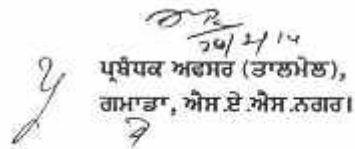 ਪ੍ਰਬੰਧਕ ਅਫਸਰ (ਤਾਲਮੇਲ),
ਗਮਾਡਾ, ਐਸ.ਏ.ਐਸ.ਨਗਰ।